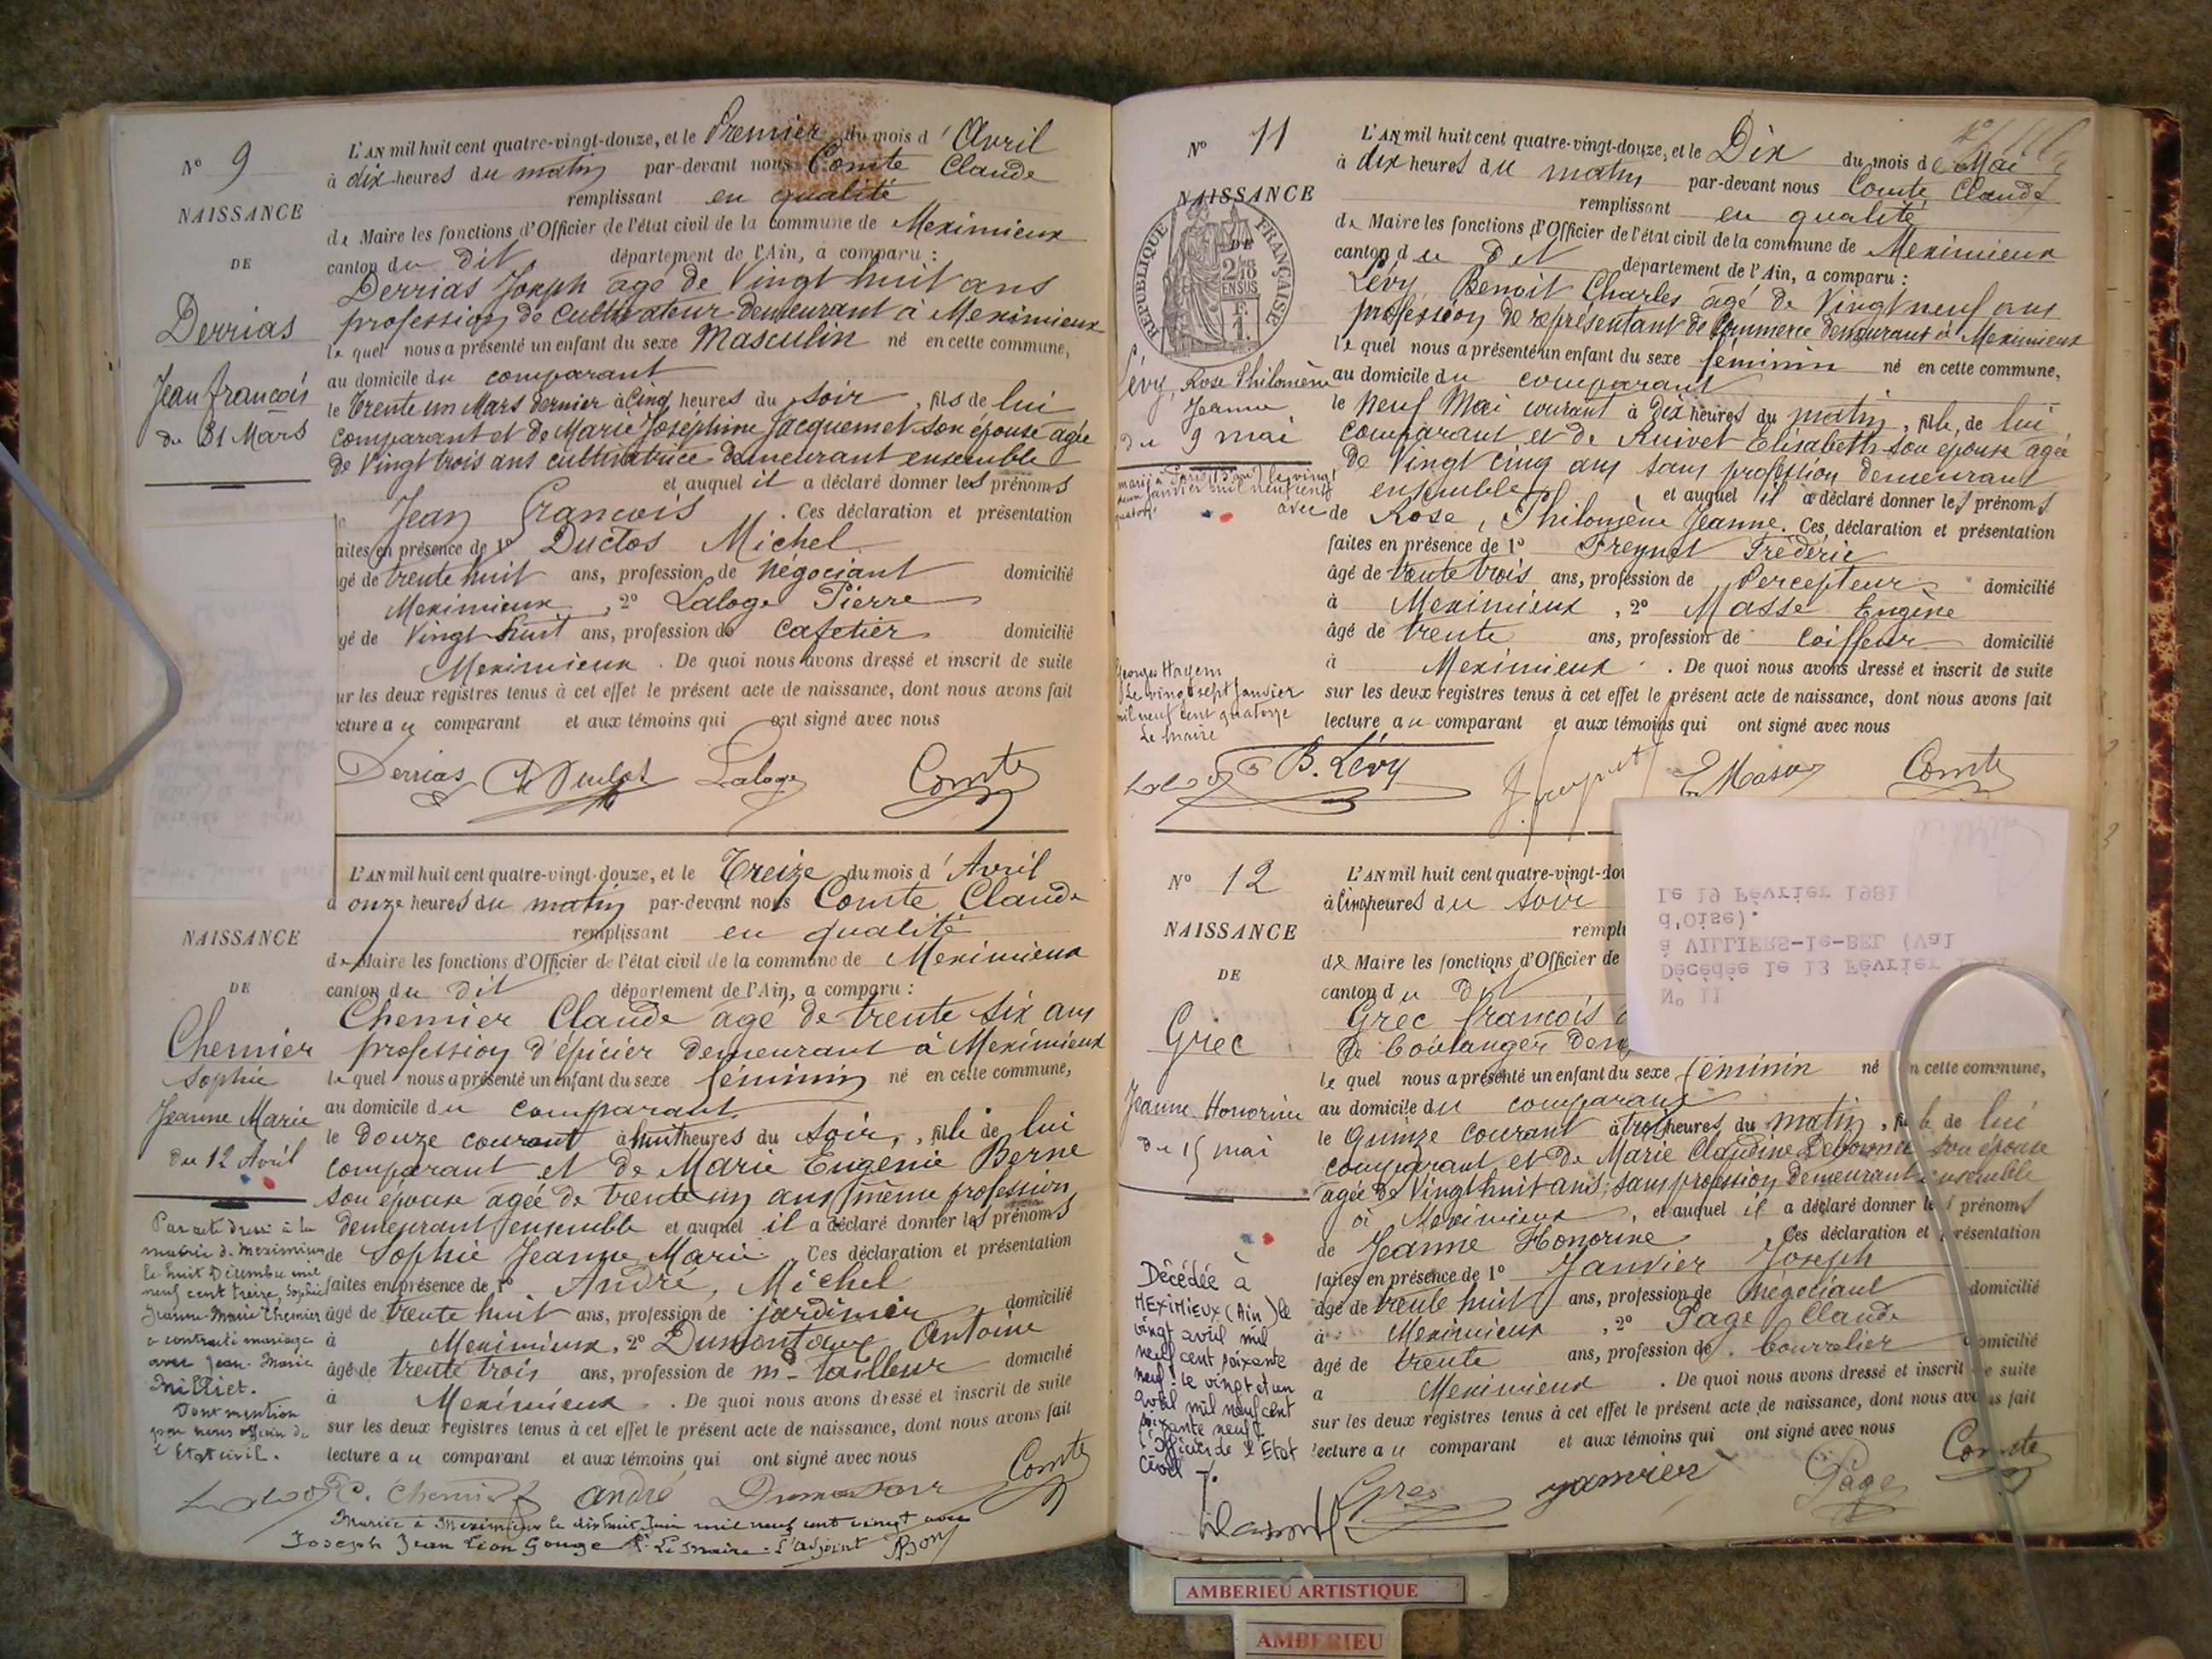 N° 9
NAISSANCE
DE
Derrias
Jean françois
du 31 Mars
L'AN mil huit cent quatre-vingt-douze, et le Premier du mois d'Avril
à dix heures du matin par-devant nous Comte Claude
remplissant en qualité
de Maire les fonctions d'Officier de l'état civil de la commune de Meximieux
canton du dit département de l'Ain, a comparu :
Derrias Joseph agé de Vingt huit ans
profession de Cultivateur demeurant à Meximieux
le quel nous a présenté un enfant du sexe Masculin né en cette commune,
au domicile du comparant
le trente un Mars dernier à Cinq heures du soir, fils de lui
comparant et de Marie Joséphine Jacquemet son épouse agée
de Vingt trois ans cultivatrice demeurant ensemble
et auquel il a déclaré donner les prénoms
Jean François . Ces déclaration et présentation
aites en présence de 1° Duclos Michel
gé de trente huit ans, profession de Négociant domicilié
Meximieux, 2° Laloge Pierre
gé de Vingt huit ans, profession de Cafetier domicilié
Meximieux . De quoi nous avons dressé et inscrit de suite
ur les deux registres tenus à cet effet le présent acte de naissance, dont nous avons fait
cture au comparant et aux témoins qui ont signé avec nous
Derrias Duclot Laloge Comte
NAISSANCE
DE
Chemier
Sophie
Jeanne Marie
du 12 Avril
L'AN mil huit cent quatre-vingt-douze, et le Treize du mois d'Avril
à onze heures du matin par-devant nous Comte Claude
remplissant en qualité
de Maire les fonctions d'Officier de l'état civil de la commune de Meximieux
canton du dit département de l'Ain, a comparu :
Chemier Claude agé de trente six ans
profession d'épicier demeurant à Meximieux
le quel nous a présenté un enfant du sexe féminin né en cette commune,
au domicile du comparant
le douze courant à huit heures du soir, fille de lui
comparant et de Marie Eugénie Berne
son épouse agée de trente un ans même profession
demeurant ensemble et auquel il a déclaré donner les prénoms
de Sophie Jeanne Marie. Ces déclaration et présentation
faites en présence de 1° André, Michel
âgé de trente huit ans, profession de jardinier domicilié
à Meximieux, 2° Antoine
âgé de trente trois ans, profession de md tailleur domicilié
à Meximieux . De quoi nous avons dressé et inscrit de suite
sur les deux registres tenus à cet effet le présent acte de naissance, dont nous avons fait
lecture au comparant et aux témoins qui ont signé avec nous
C. Chemier andré Comte
Par acte dressé à la
mairie de Meximieux
le huit Décembre mil
neuf cent treize, Sophie
Jeanne-Marie Chemier
a contracté mariage
avec Jean-Marie
Milliet.
Dont mention
par nous officier de
l'Etat civil.
Mariée à Meximieux le dix huit Juin mil neuf cent vingt avec
Joseph Jean Léon Gouge Le Maire. L'adjoint
N° 11
NAISSANCE
DE
RÉPUBLIQUE FRANÇAISE
Lévy, Rose Philomène
Jeanne
du 9 mai
L'AN mil huit cent quatre-vingt-douze, et le Dix du mois de Mai
à dix heures du matin par-devant nous Comte Claude
remplissant en qualité
de Maire les fonctions d'Officier de l'état civil de la commune de Meximieux
canton du dit département de l'Ain, a comparu :
Lévy Benoit Charles agé de Vingt neuf ans
profession de représentant de Commerce demeurant à Meximieux
le quel nous a présenté un enfant du sexe féminin né en cette commune,
au domicile du comparant
le Neuf Mai courant à Dix heures du matin, fille, de lui
comparant et de Ruivet Elisabeth son épouse agée
de Vingt cinq ans sans profession demeurant
ensemble, et auquel il a déclaré donner les prénoms
de Rose, Philomène Jeanne. Ces déclaration et présentation
faites en présence de 1° Freynet Frédéric
âgé de trente trois ans, profession de Percepteur domicilié
à Meximieux, 2° Masse Eugène
âgé de trente ans, profession de Coiffeur domicilié
à Meximieux . De quoi nous avons dressé et inscrit de suite
sur les deux registres tenus à cet effet le présent acte de naissance, dont nous avons fait
lecture au comparant et aux témoins qui ont signé avec nous
B. Lévy E Masse Comte
mariée à Paris le vingt
deux janvier mil neuf cent
quatorze avec
Georges Hayem
Le vingt sept Janvier
mil neuf cent quatorze
Le Maire
N° 11
Décédée le 13 Février
à VILLIERS-le-BEL (Val
d'Oise).
Le 19 Février 1981
N° 12
NAISSANCE
DE
Grec
Jeanne Honorine
du 15 mai
L'AN mil huit cent quatre-vingt-dou
à Cinq heures du soir
rempli
de Maire les fonctions d'Officier de
canton du dit
Grec françois
de boulanger dem
le quel nous a présenté un enfant du sexe féminin né en cette commune,
au domicile du comparant
le Quinze courant à trois heures du matin, fille de lui
comparant et de Marie Claudine son épouse
agée de Vingt huit ans, sans profession demeurant ensemble
à Meximieux, et auquel il a déclaré donner les prénoms
de Jeanne Honorine Ces déclaration et présentation
faites en présence de 1° Janvier Joseph
âgé de trente huit ans, profession de Négociant domicilié
à Meximieux, 2° Page Claude
âgé de trente ans, profession de bourrelier domicilié
à Meximieux . De quoi nous avons dressé et inscrit de suite
sur les deux registres tenus à cet effet le présent acte de naissance, dont nous avons fait
lecture au comparant et aux témoins qui ont signé avec nous
Grec janvier Page Comte
Décédée à
MEXIMIEUX (Ain) le
vingt avril mil
neuf cent soixante
neuf. le vingt et un
avril mil neuf cent
soixante neuf
l'Officier de l'Etat
Civil
AMBERIEU ARTISTIQUE
AMBERIEU